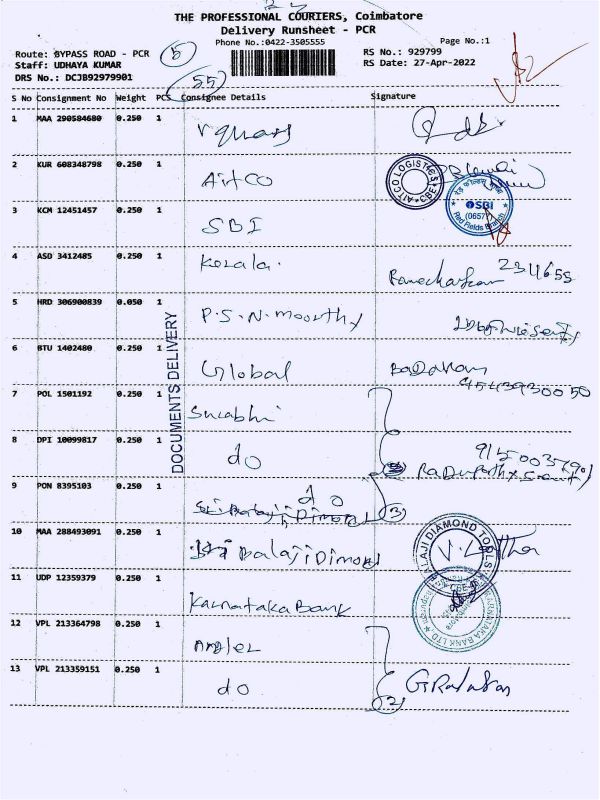 THE PROFESSIONAL COURIERS, Coimbatore
Delivery Runsheet - PCR
Phone No.:0422-3505555
Page No.:1
Route: BYPASS ROAD - PCR
RS No.: 929799
Staff: UDHAYA KUMAR
RS Date: 27-Apr-2022
DRS No.: DCJB92979901
55
S No Consignment No Weight PCS Consignee Details Signature
1 MAA 290584680 0.250 1
2 KUR 608348798 0.250 1 AitCO
AITCO LOGISTICS CBE
SBI
(0657)
Red Fields Branch
3 KCM 12451457 0.250 1 SBI
4 ASD 3412485 0.250 1 Kerala.
5 HRD 306900839 0.050 1 P.S.N.Moorthy
6 BTU 1402480 0.250 1 Global
DOCUMENTS DELIVERY
7 POL 1501192 0.250 1 Surabhi
8 DPI 10099817 0.250 1 do
9 PON 8395103 0.250 1 do
Sri Balaji Dimond
3
10 MAA 288493091 0.250 1 Sri Balaji Dimond
BALAJI DIAMOND TOOLS
CBE
11 UDP 12359379 0.250 1 Karnataka Bank
KARNATAKA BANK LTD
12 VPL 213364798 0.250 1 Angler
13 VPL 213359151 0.250 1 do
2